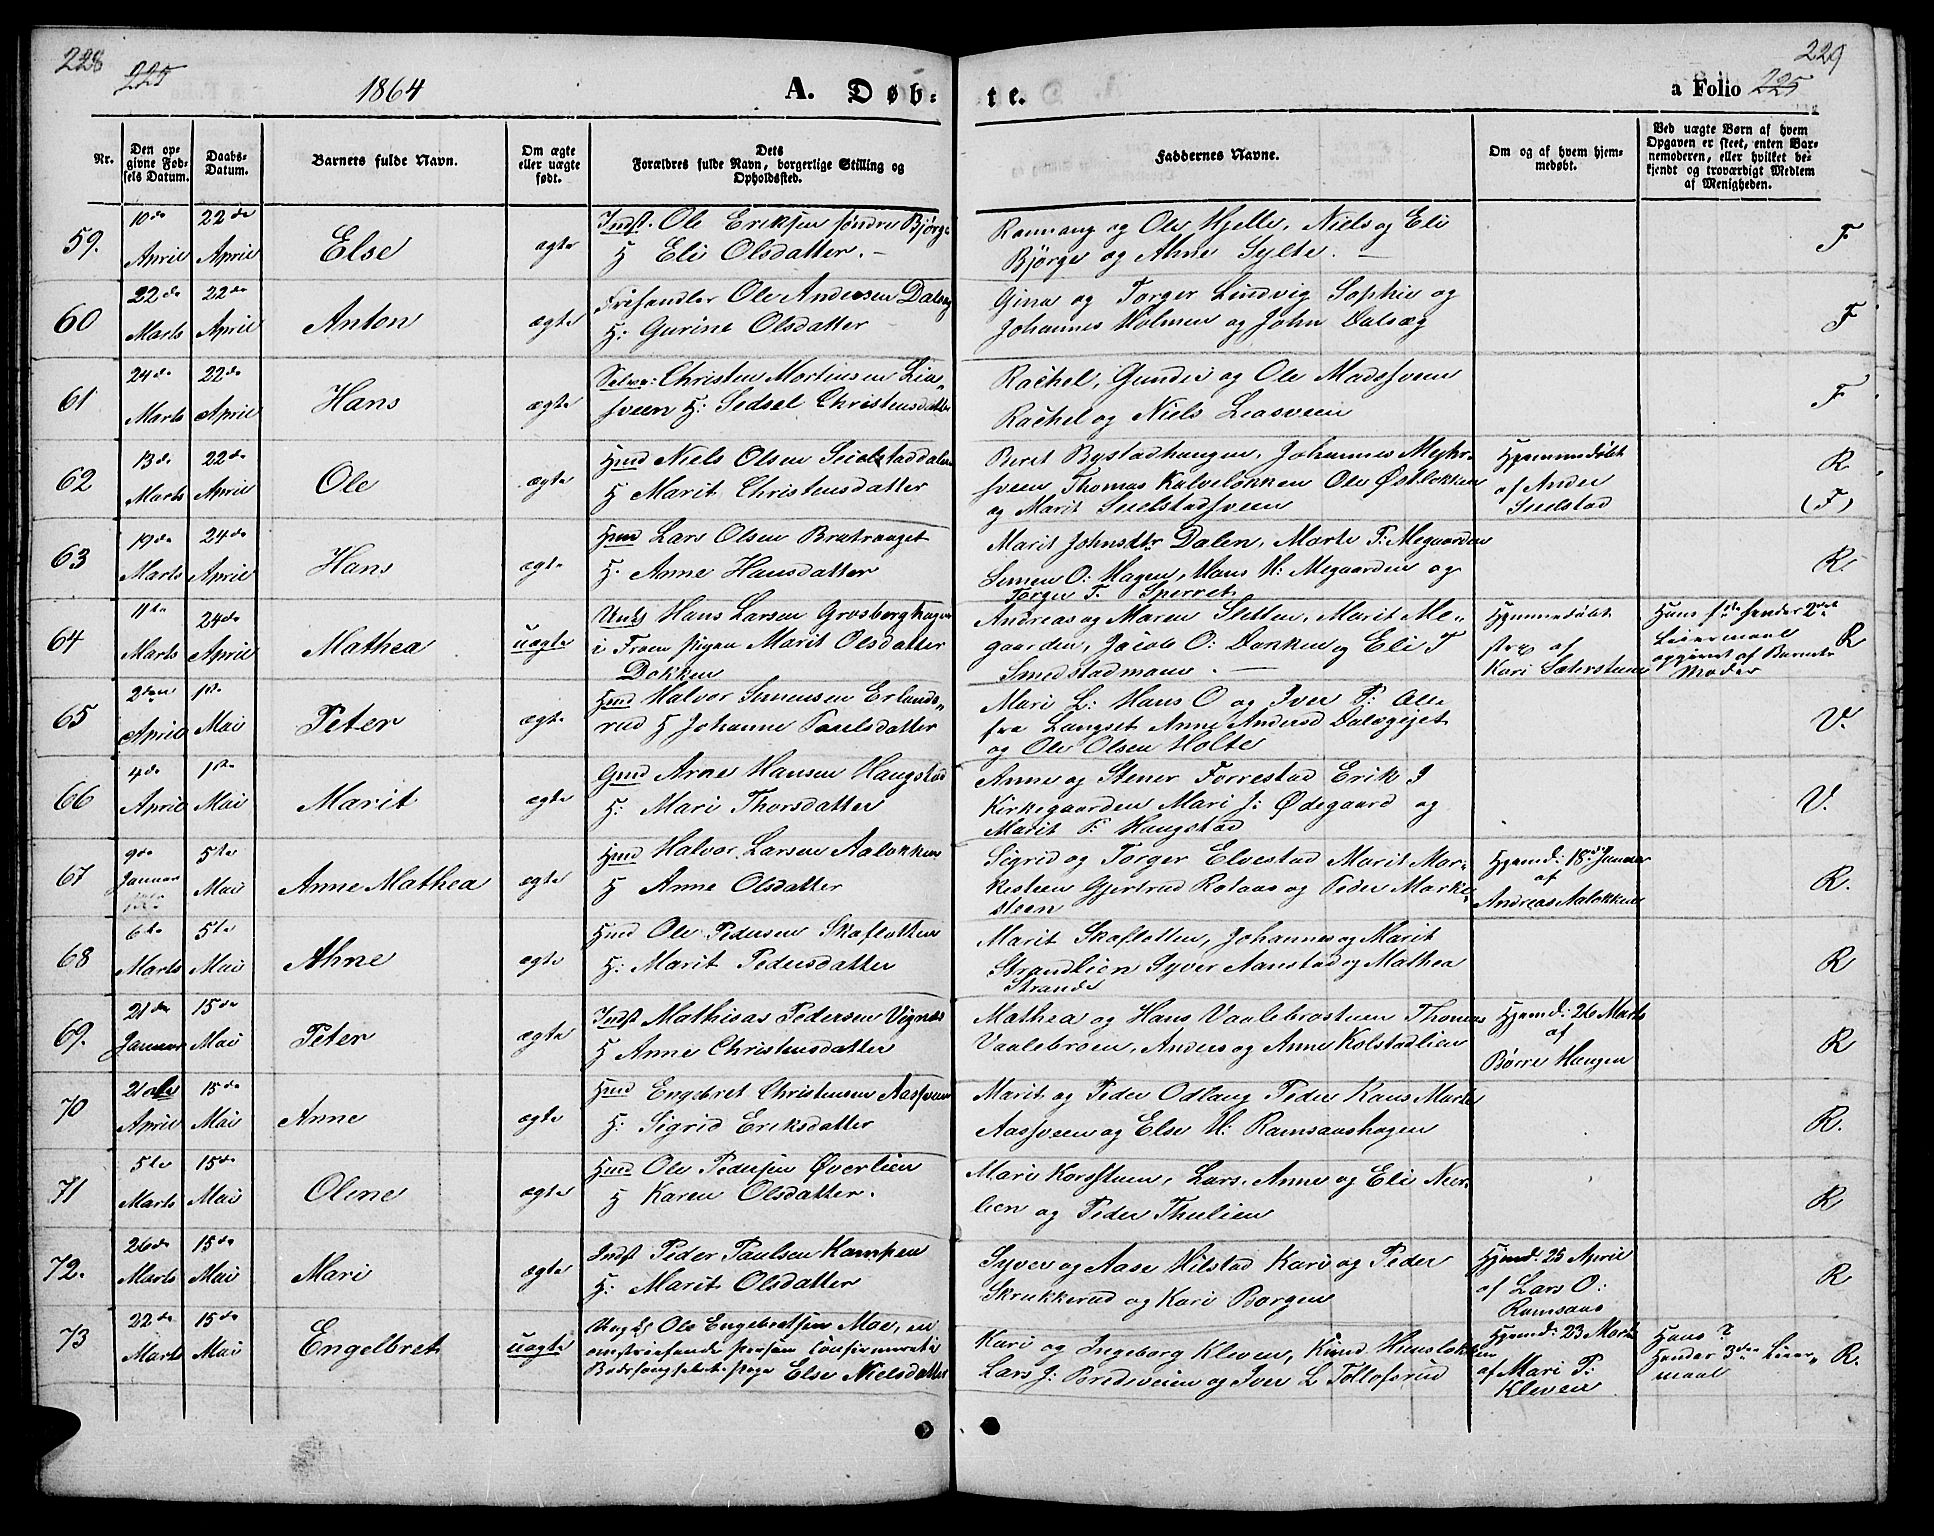 228
225
1864
A. Døb-
te.
229
a Folio 225
Nr.
Den op-
givne Fød-
sels Datum.
Daabs-
Datum.
Barnets fulde Navn.
Om ægte
eller uægte
født.
Dets
Forældres fulde Navn, borgerlige Stilling og
Opholdssted.
Faddernes Navne.
Om og af hvem hjem-
medøbt.
Ved uægte Børn af hvem
Opgaven er skeet, enten Bar-
nemoderen, eller hvilket be-
kjendt og troværdigt Medlem
af Menigheden.
59. 10de April 22de April Else ægte
Indst. Ole Eriksen søndre Bjørge
H Eli Olsdatter. –
Rannaug og Ole Hjelle, Niels og Eli
Bjørge og Ahne Sylte. –
F
60 22de Marts 22de April Anton ægte
Frihandler Ole Andersen Dalseg
H: Gurine Olsdatter
Gina og Torger Lindvig Sophie og
Johannes Holmen og John Dalsæg
F
61 24de Marts 22de April Hans ægte
Selve: Christen Mortensen Lia-
sveen H: Sedsel Christensdatter
Rachel, Gunder og Ole Madssveen
Rachel og Niels Liasveen
F
62 13de Marts 22de April Ole ægte
Hmd Niels Olsen Suelstaddalen
H Marit Christensdatter
Beret Bystadhaugen, Johannes Myhr-
sveen, Thomas Kalveløkken Ole Østløkken
og Marit Suelstadsveen
Hjemmedøbt
af Ander
Suelstad
R
(F)
63 19de Marts 24de April Hans ægte
Hmd Lars Olsen Bratvanget
H. Anne Hansdatter
Marit Johnsdtr Dalen, Marte P: Megaarden
Simen O: Hagen, Hans H: Megaarden og
Torger T. Sperret
R.
64 11te Marts 24de April Mathea uægte
Unks Hans Larsen Grosberghagen
i Fron pigen Marit Olsdatter
Dokken
Andreas og Maren Sletten, Marit Me-
gaarden, Jacob O: Donken og Eli T
Smedstadmoen. –
Hjemmedøbt
strax af
Kari Sæterstuen
Hans 1ste hendes 2det
Leiermaal
opgivet af Barnets
Moder
R
65 2den April 1ste Mai Peter ægte
Hmd Halvor Simensen Erlands-
rud H Johanne Paulsdatter
Mari L: Hans O og Iver P: Alle
fra Langset Anne Andersd Dalsegejet
og Ole Olsen Holte
V.
66 4de April 1ste Mai Marit ægte
Gmd Arne Hansen Haugstad
H: Mari Thorsdatter
Anne og Stener Forrestad Erik I
Kirkegaarden Mari J: Ødegaard og
Marit P: Haugstad
V.
67 9de Januar 5te Mai Anne Mathea ægte
Hmd Halvor Larsen Aaløkken
H Anne Olsdatter
Sigrid og Torger Elvestad Marit Mar-
kesteen Gjertrud Rolaas og Peder Marke-
steen
Hjemd: 18de Januar
af
Andreas Aaløkken
R.
68 6te Marts 5te Mai Ahne ægte
Hmd Ole Pedersen Skaflotten
H: Marit Pedersdatter
Marit Skaflotten, Johannes og Marit
Strandlien Syver Aanstad og Mathea
Strande
R
69. 21de Januar 15de Mai Peter ægte
Indst Mathias Pedersen Vignæs
H Anne Christensdatter
Mathea og Hans Vaalebrostuen Thomas
Vaalebroen, Anders og Anne Kolstadlien
Hjemd: 26 Marts
af
Børre Haugen
R
70 21de April 15de Mai Anne ægte
Hmd Engebret Christensen Aassveen
H: Sigrid Eriksdatter
Marit og Peder Odlaug Peder Kans Marte
Aassveen og Else H: Ramsaashagen
R.
71 5te Marts 15de Mai Oline ægte
Hmd Ole Pedersen Øverlien
H Karen Olsdatter.
Mari Korsstuen, Lars, Anne og Eli Neer-
lien og Peder Thulien
R
72. 26de Marts 15de Mai Mari ægte
Indst Peder Paulsen Kampen
H: Marit Olsdatter
Syver og Aase Hilstad Kari og Peder
Skrukkerud og Kari Borgen
Hjemd: 25 April
af Lars O:
Ramsaas
R
73 22de Marts 15de Mai Engelbret uægte
Ungk Ole Engebretsen Moe, en
omstreifende person confirmeret i
Bødsfængselet pige Else Nielsdatter
Kari og Ingeborg Kleven, Knud Hansløkken
Lars J: Bredeveien og Iver L Tollefsrud
Hjemd: 23 Marts
af Mari P:
Kleven
Hans ?
Hendes 3die Leier-
maal
R.